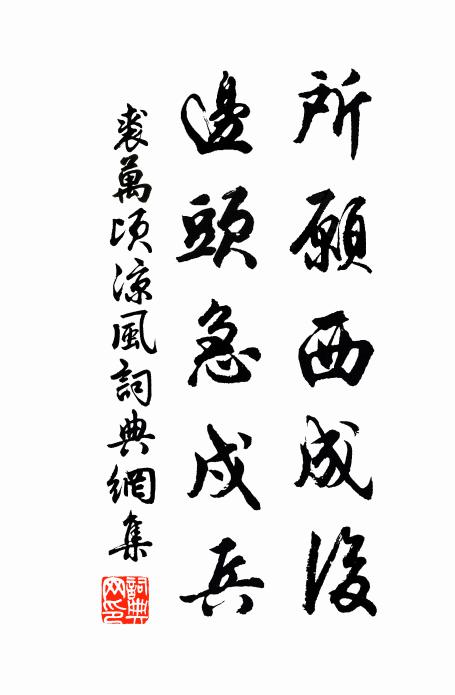 所願西成後
邊頭急戍兵
裘萬頃涼風詞典網集
詞典網印